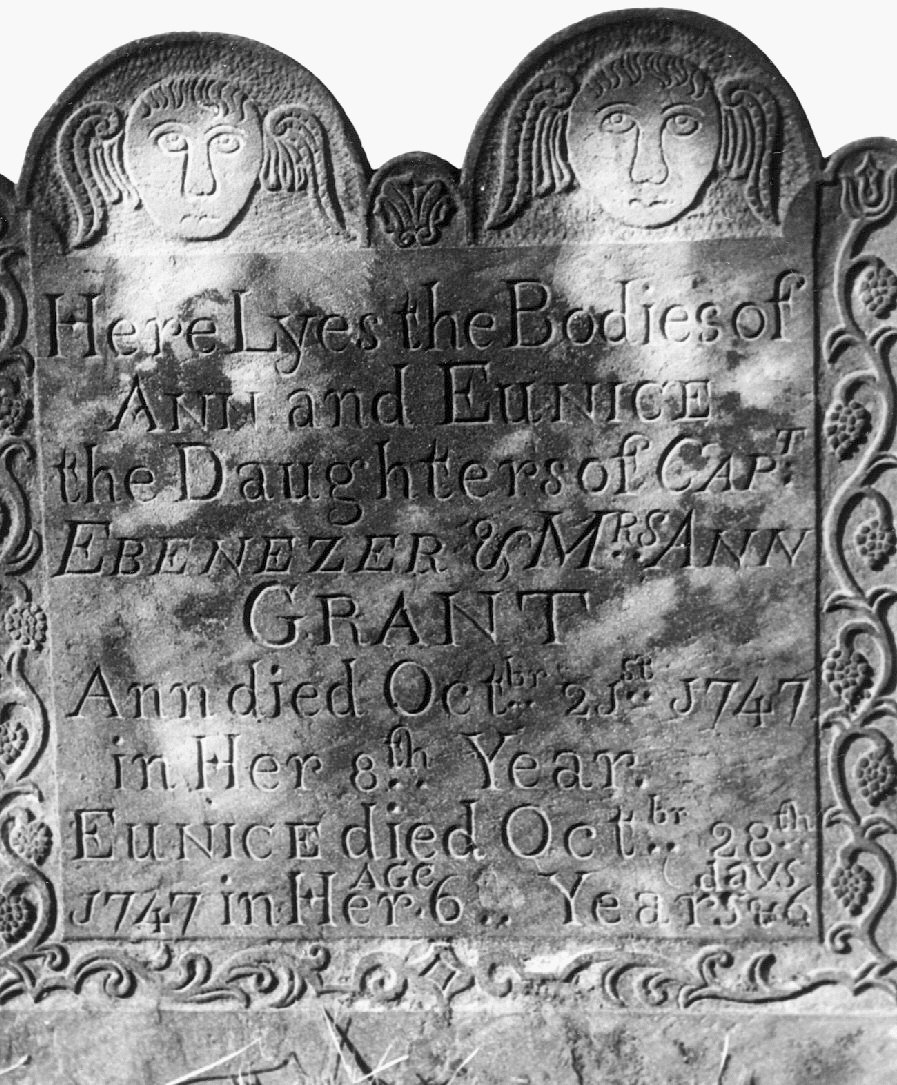 Here Lyes the Bodies of
ANN and EUNICE
the Daughters of CAPT.
EBENEZER & MRS ANN
GRANT
Ann died Octbr 21st 1747
in Her 8th Year.
EUNICE died Octbr 28th
1747 in Her AGE 6 Years & 6 days